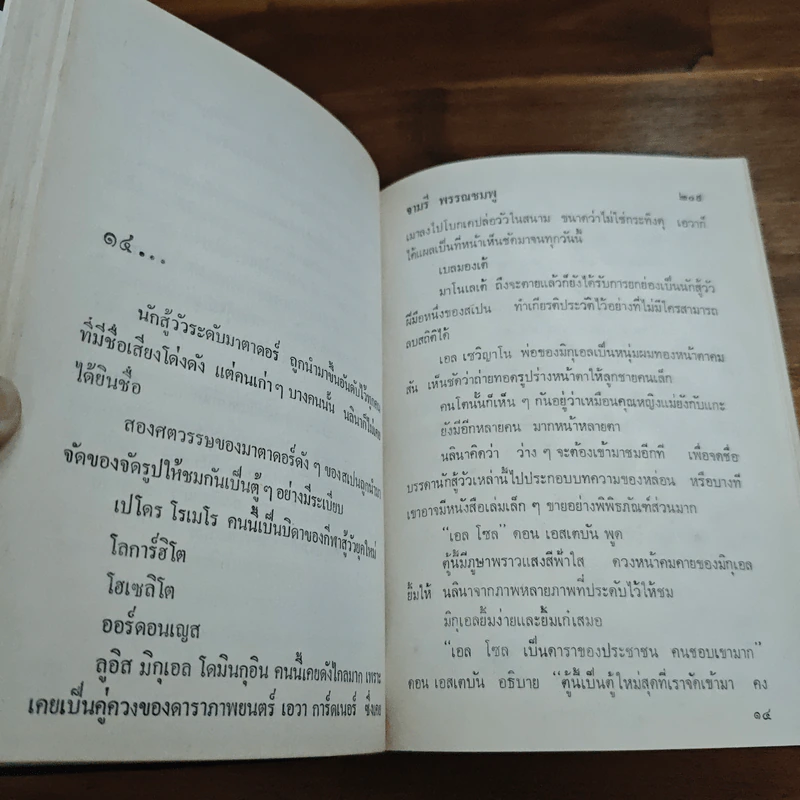 ๑๔...
นักสู้วัวระดับมาตาดอร์ ถูกนำมาขึ้นอันดับไว้ทุกคน
ที่มีชื่อเสียงโด่งดัง แต่คนเก่าๆ บางคนนั้น นลินาก็ไม่เคย
ได้ยินชื่อ
สองศตวรรษของมาตาดอร์ดัง ๆ ของสเปนถูกนำมา
จัดของจัดรูปให้ชมกันเป็นตู้ ๆ อย่างมีระเบียบ
เปโดร โรเมโร คนนี้เป็นบิดาของกีฬาสู้วัวยุคใหม่
โลการ์ฮิโต
โฮเซลิโต
ออร์ดอนเญส
ลูอิส มิกุเอล โดมินกุอิน คนนี้เคยดังไกลมาก เพราะ
เคยเป็นคู่ควงของดาราภาพยนตร์ เอวา การ์ดเนอร์ ซึ่งเคย
จามรี พรรณชมพู ๒๑๕
เมาลงไปโบกเคปล่อวัวในสนาม ขนาดว่าไม่ใช่กระทิงดุ เอวาก็
ได้แผลเป็นที่หน้าเห็นชัดมาจนทุกวันนี้
เบลมองเต้
มาโนเลเต้ ถึงจะตายแล้วก็ยังได้รับการยกย่องเป็นนักสู้วัว
ฝีมือหนึ่งของสเปน ทำเกียรติประวัติไว้อย่างที่ไม่มีใครสามารถ
ลบสถิติได้
เอล เซวิญาโน พ่อของมิกุเอลเป็นหนุ่มผมทองหน้าตาคม
สัน เห็นชัดว่าถ่ายทอดรูปร่างหน้าตาให้ลูกชายคนเล็ก
คนโตนั้นก็เห็น ๆ กันอยู่ว่าเหมือนคุณหญิงแม่ยังกับแกะ
ยังมีอีกหลายคน มากหน้าหลายตา
นลินาคิดว่า ว่าง ๆ จะต้องเข้ามาชมอีกที เพื่อจดชื่อ
บรรดานักสู้วัวเหล่านี้ไปประกอบบทความของหล่อน หรือบางที
เขาอาจมีหนังสือเล่มเล็ก ๆ ขายอย่างพิพิธภัณฑ์ส่วนมาก
“เอล โซล” ดอน เอสเตบัน พูด
ตู้นี้มีภูษาพราวแสงสีฟ้าใส ดวงหน้าคมคายของมิกุเอล
ยิ้มให้ นลินาจากภาพหลายภาพที่ประดับไว้ให้ชม
มิกุเอลยิ้มง่ายและยิ้มเก๋เสมอ
“เอล โซล เป็นดาราของประชาชน คนชอบเขามาก”
ดอน เอสเตบัน อธิบาย “ตู้นี้เป็นตู้ใหม่สุดที่เราจัดเข้ามา คง
๑๔